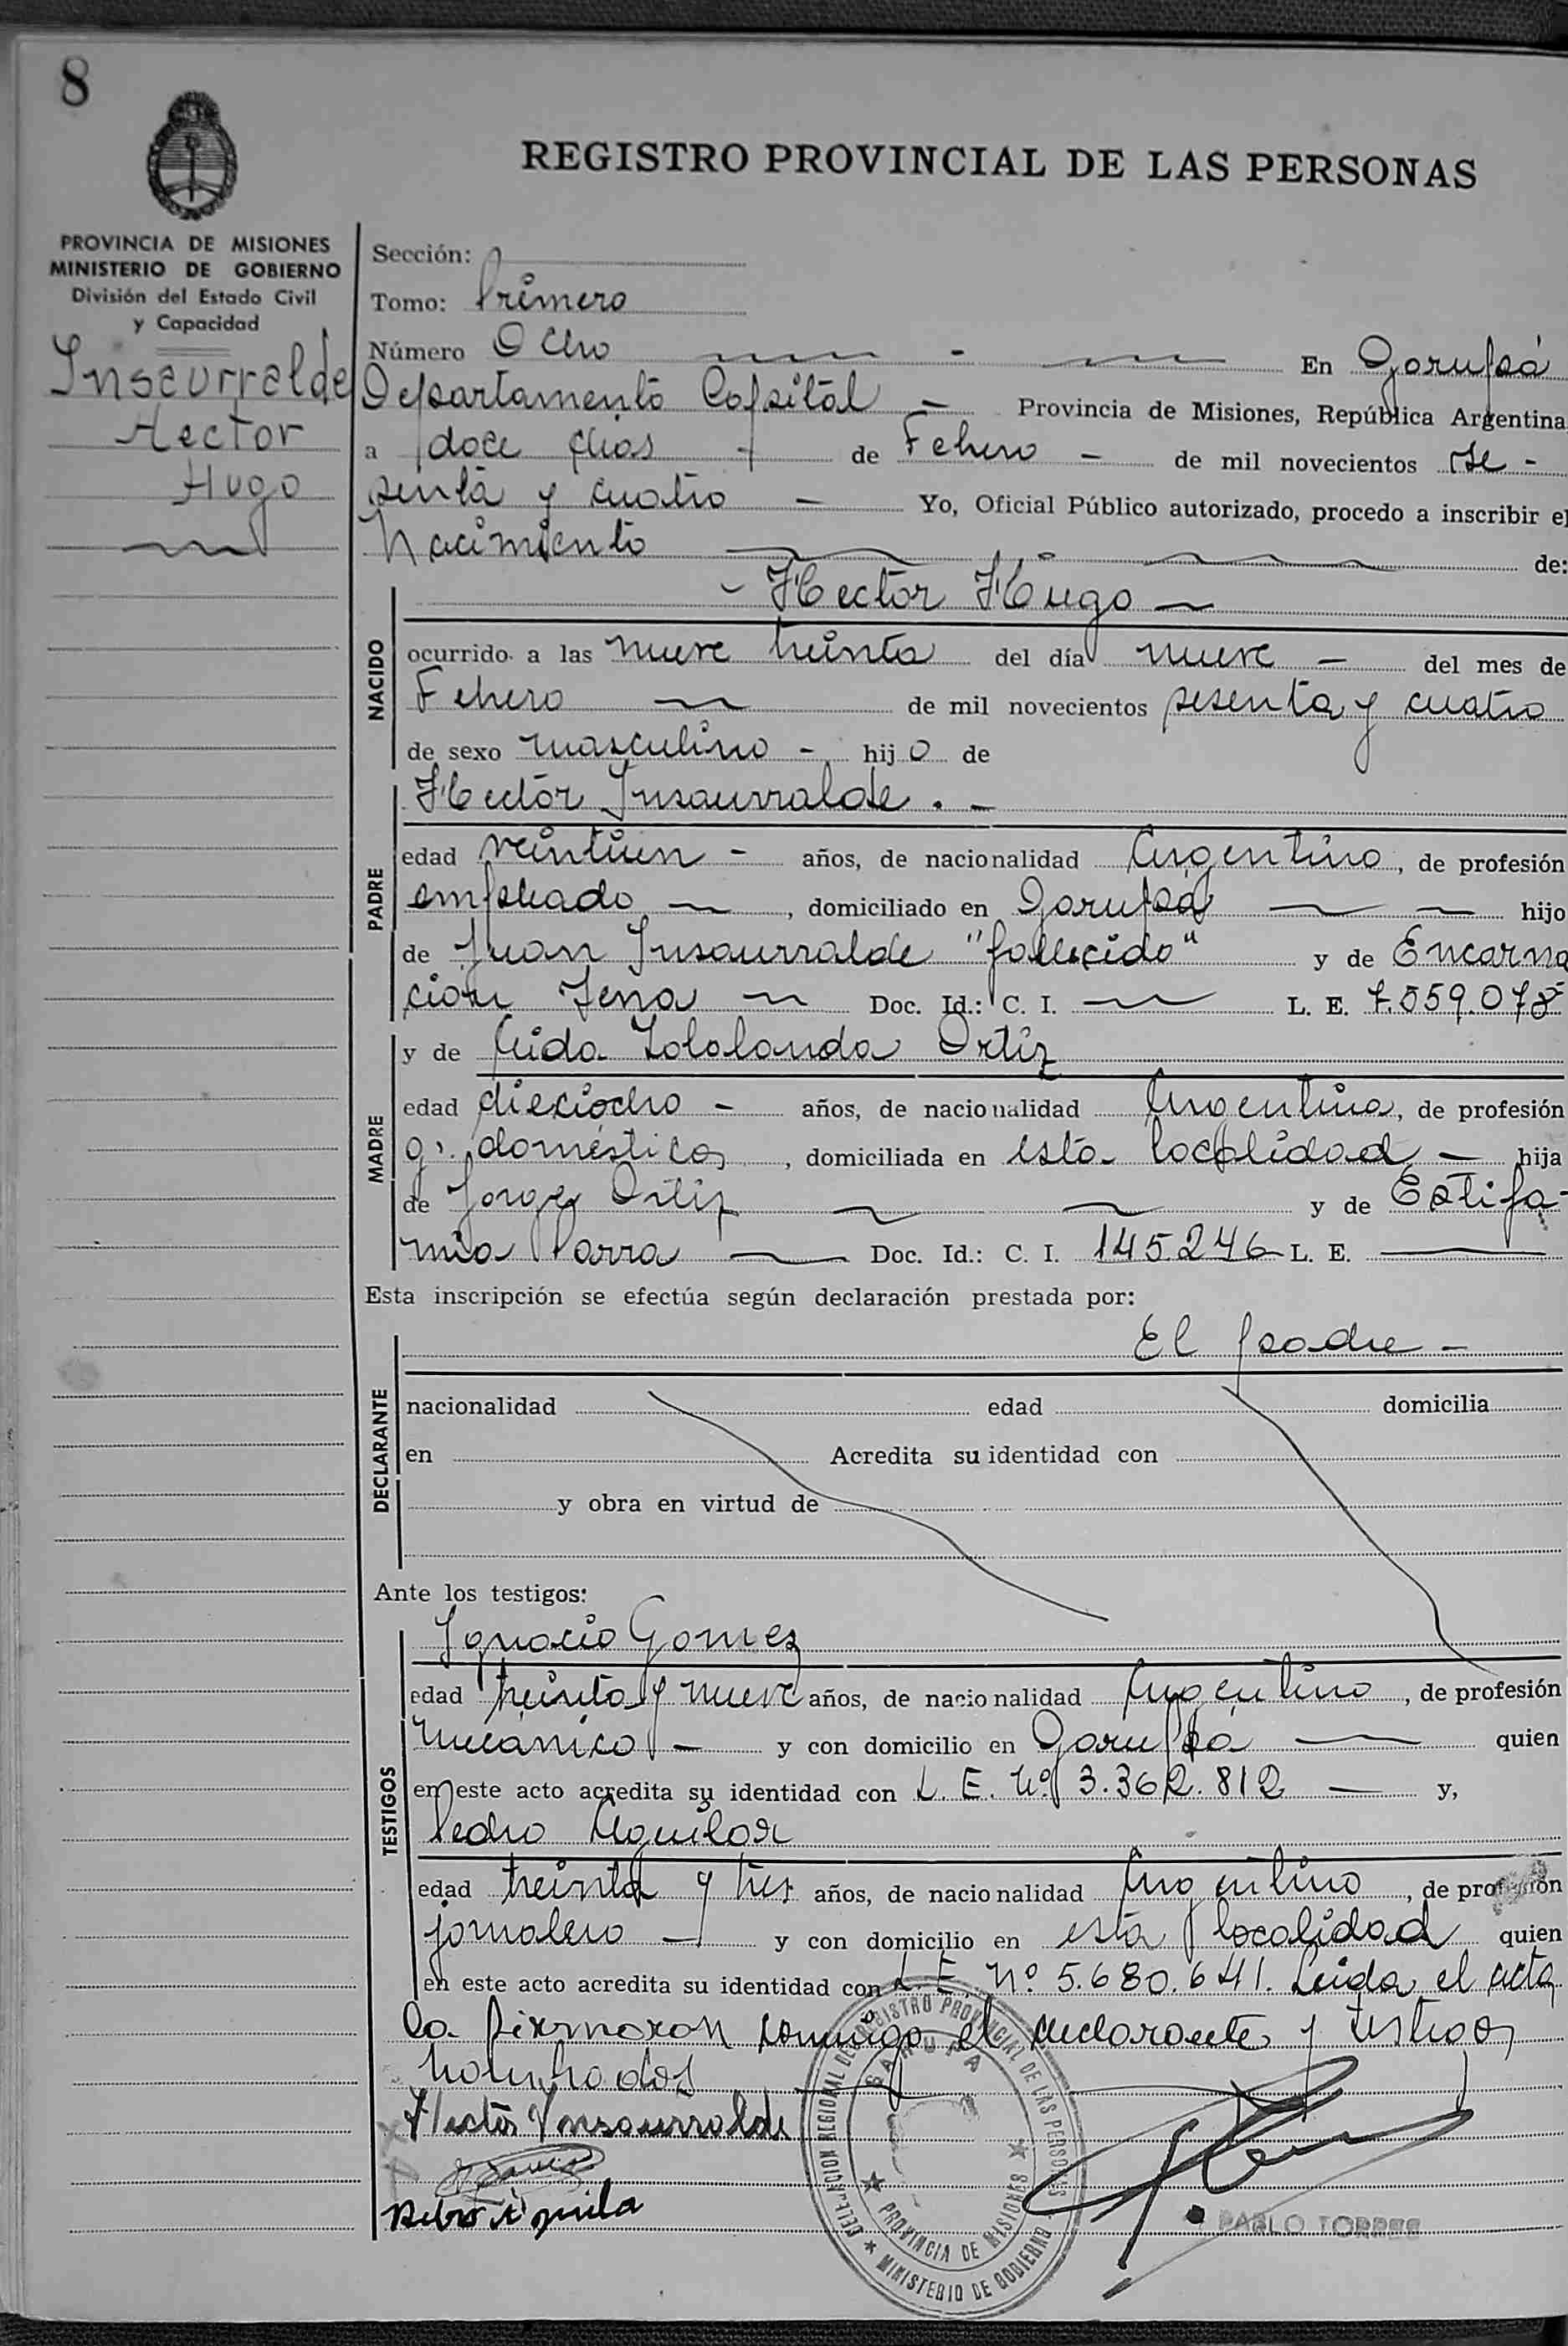 8
REGISTRO PROVINCIAL DE LAS PERSONAS
PROVINCIA DE MISIONES
MINISTERIO DE GOBIERNO
División del Estado Civil
y Capacidad
Insaurralde
Hector
Hugo
Sección:
Tomo: Primero
Número Ocho En Garupá
Departamento Capital - Provincia de Misiones, República Argentina
a doce días de Febrero - de mil novecientos se-
senta y cuatro - Yo, Oficial Público autorizado, procedo a inscribir el
Nacimiento de:
Hector Hugo
NACIDO
ocurrido a las nueve treinta del día nueve - del mes de
Febrero de mil novecientos sesenta y cuatro
de sexo masculino - hijo de
PADRE
Hector Insaurralde . -
edad veintiun - años, de nacionalidad Argentino, de profesión
empleado, domiciliado en Garupá hijo
de Juan Insaurralde "fallecido" y de Encarna
cion Doc. Id.: C. I. L. E. 7.559.078
MADRE
y de Ortiz
edad dieciocho - años, de nacionalidad Argentina, de profesión
q. domésticos, domiciliada en esta localidad - hija
de Jorge Ortiz y de Estifa-
nia Parra Doc. Id.: C. I. 145.246 L. E.
Esta inscripción se efectúa según declaración prestada por:
DECLARANTE
El padre -
nacionalidad edad domicilia
en Acredita su identidad con
y obra en virtud de
Ante los testigos:
TESTIGOS
Ignacio Gomez
edad treinta y nueve años, de nacionalidad Argentino, de profesión
mecánico - y con domicilio en Garupá quien
en este acto acredita su identidad con L. E. Nº 3.362.812 y,
Pedro Aguilar
edad treinta y tres años, de nacionalidad Argentino, de profesión
jornalero - y con domicilio en esta localidad quien
en este acto acredita su identidad con L. E. Nº 5.680.641. Leida el acta
la firmaron conmigo el declarante y testigos
nombrados
Hector Ynsaurralde
Pedro Aguila
DELEGACION REGIONAL DEL REGISTRO PROVINCIAL DE LAS PERSONAS
GARUPA
PROVINCIA DE MISIONES
MINISTERIO DE GOBIERNO
PABLO TORRES